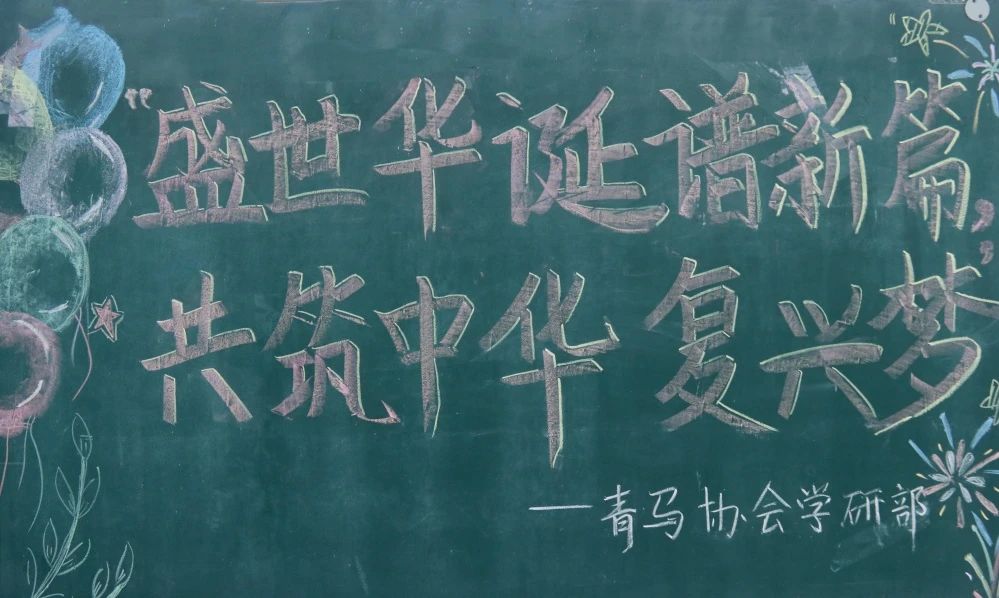 “盛世华诞谱新篇，
共筑中华复兴梦”
——青马协会学研部